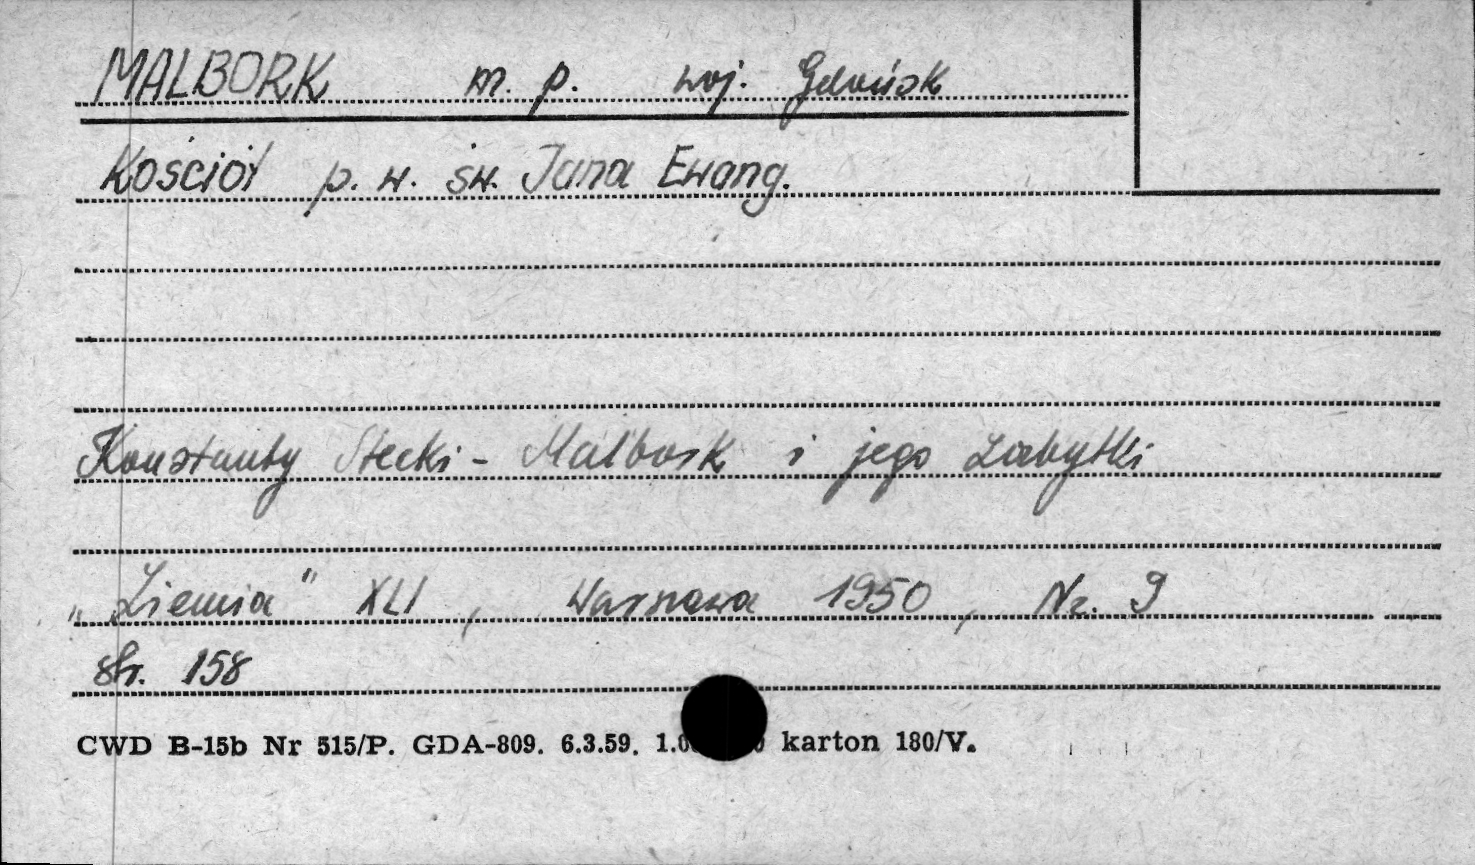 MALBORK m. p. woj. Gdańsk
Kościół p. w. św. Jana Ewang.
Konstanty Stecki - Malbork i jego zabytki
„Ziemia" XLI, Warszawa 1950, Nr. 9
str. 158
CWD B-15b Nr 515/P. GDA-809. 6.3.59. karton 180/V.